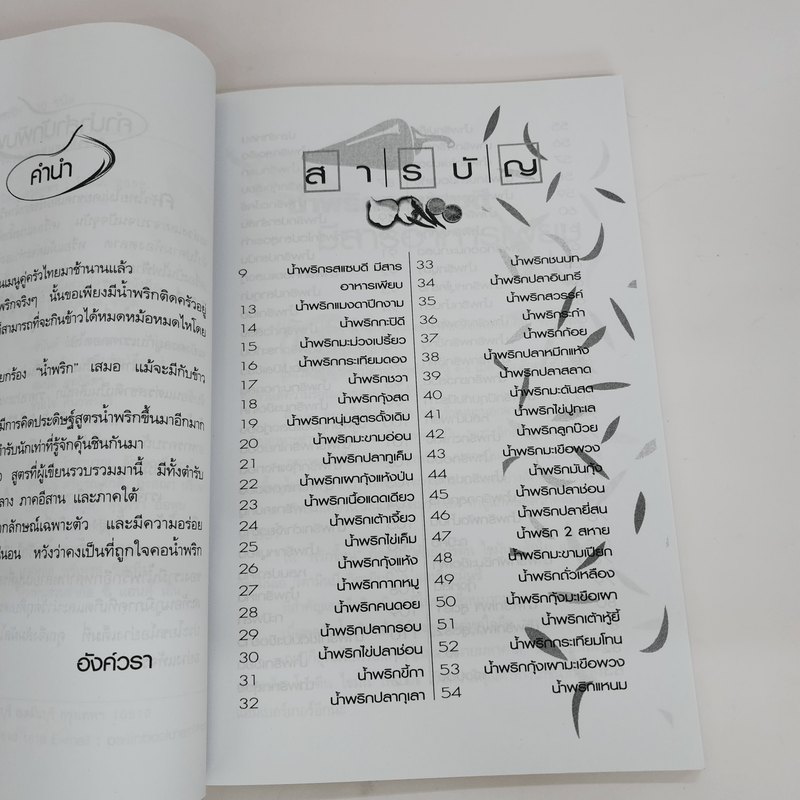 คำนำ
นเมนูคู่ครัวไทยมาช้านานแล้ว
พริกจริงๆ นั้นขอเพียงมีน้ำพริกติดครัวอยู่
ก็สามารถที่จะกินข้าวได้หมดหม้อหมดไหโดย
ยกร้อง “น้ำพริก” เสมอ แม้จะมีกับข้าว
มีการคิดประดิษฐ์สูตรน้ำพริกขึ้นมาอีกมาก
ตำรับนักเท่าที่รู้จักคุ้นชินกันมา
สูตรที่ผู้เขียนรวบรวมมานี้ มีทั้งตำรับ
ลาง ภาคอีสาน และภาคใต้
อกลักษณ์เฉพาะตัว และมีความอร่อย
นี่นอน หวังว่าคงเป็นที่ถูกใจคอน้ำพริก
อังค์วรา
สารบัญ
9 น้ำพริกรสแซบดี มีสาร
อาหารเพียบ
13 น้ำพริกแมงดาปีกงาม
14 น้ำพริกกะปิดี
15 น้ำพริกมะม่วงเปรี้ยว
16 น้ำพริกกระเทียมดอง
17 น้ำพริกชวา
18 น้ำพริกกุ้งสด
19 น้ำพริกหนุ่มสูตรดั้งเดิม
20 น้ำพริกมะขามอ่อน
21 น้ำพริกปลาทูเค็ม
22 น้ำพริกเผากุ้งแห้งป่น
23 น้ำพริกเนื้อแดดเดียว
24 น้ำพริกเต้าเจี้ยว
25 น้ำพริกไข่เค็ม
26 น้ำพริกกุ้งแห้ง
27 น้ำพริกกากหมู
28 น้ำพริกคนดอย
29 น้ำพริกปลากรอบ
30 น้ำพริกไข่ปลาช่อน
31 น้ำพริกขี้กา
32 น้ำพริกปลากุเลา
33 น้ำพริกชนบท
34 น้ำพริกปลาอินทรี
35 น้ำพริกสวรรค์
36 น้ำพริกระกำ
37 น้ำพริกก้อย
38 น้ำพริกปลาหมึกแห้ง
39 น้ำพริกปลาสลาด
40 น้ำพริกมะดันสด
41 น้ำพริกไข่ปูทะเล
42 น้ำพริกลูกบ๊วย
43 น้ำพริกมะเขือพวง
44 น้ำพริกมันกุ้ง
45 น้ำพริกปลาช่อน
46 น้ำพริกปลายี่สน
47 น้ำพริก 2 สหาย
48 น้ำพริกมะขามเปียก
49 น้ำพริกถั่วเหลือง
50 น้ำพริกกุ้งมะเขือเผา
51 น้ำพริกเต้าหู้ยี้
52 น้ำพริกกระเทียมโทน
53 น้ำพริกกุ้งเผามะเขือพวง
54 น้ำพริกแหนม